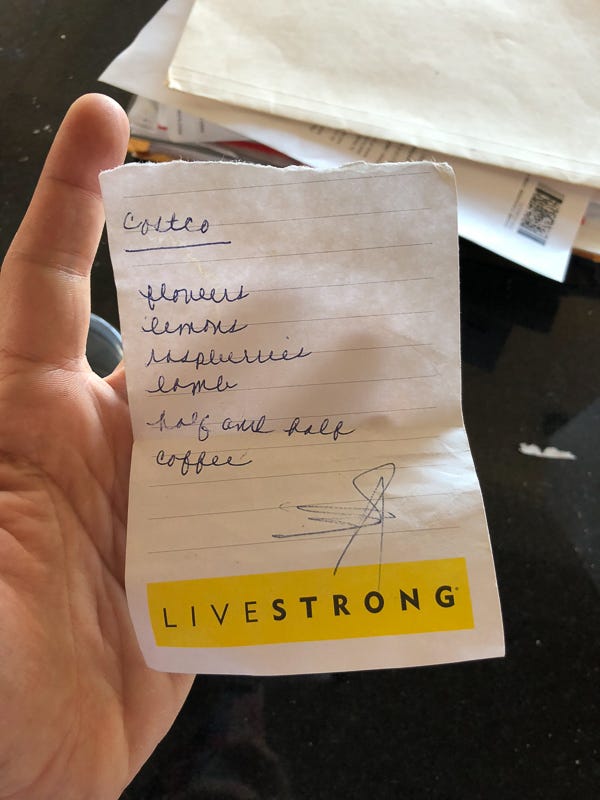 Costco
flowers
lemons
raspberries
lamb
half and half
coffee
LIVESTRONG